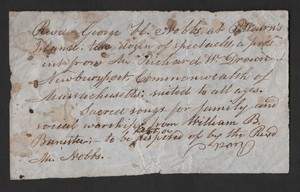 Revd George H. Nobbs at Pitcairn's
Island. two dozen of spectacles a pres
ent from Mr Richard W
Newburyport Commonwealth of
Massachusetts; suited to all ages.
Sacred songs for family and
social worship from William B.
Banister; to be kept or
disposed of by the Revd
Mr. Nobbs.